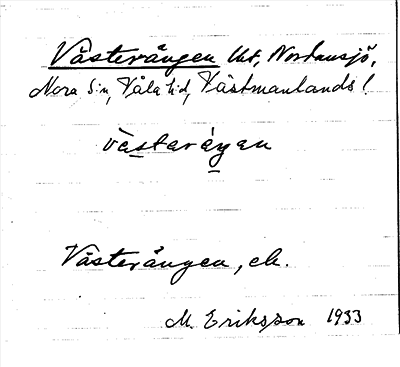 Västerängen Ukt, Nordansjö,
Nora s:n, Våla hd, Västmanlands l.
västaräŋen
Västerängen, ek.
M. Eriksson 1933